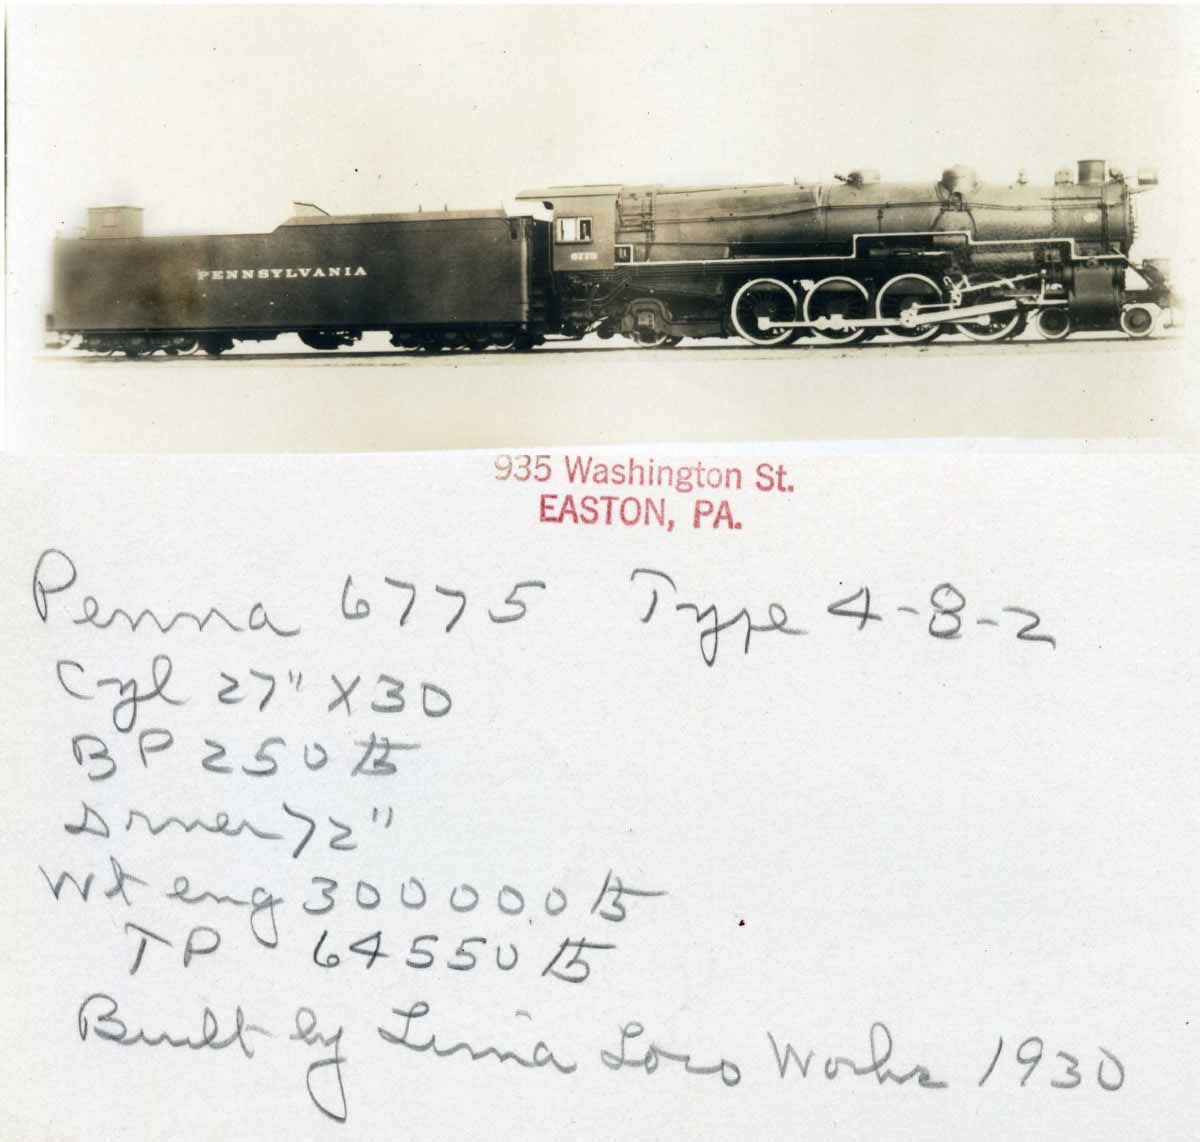 PENNSYLVANIA
6775
935 Washington St.
EASTON, PA.
Penna 6775 Type 4-8-2
Cyl 27" X 30
BP 250 lb
Driver 72"
Wt eng 300000 lb
TP 64550 lb
Built by Lima Loco Works 1930